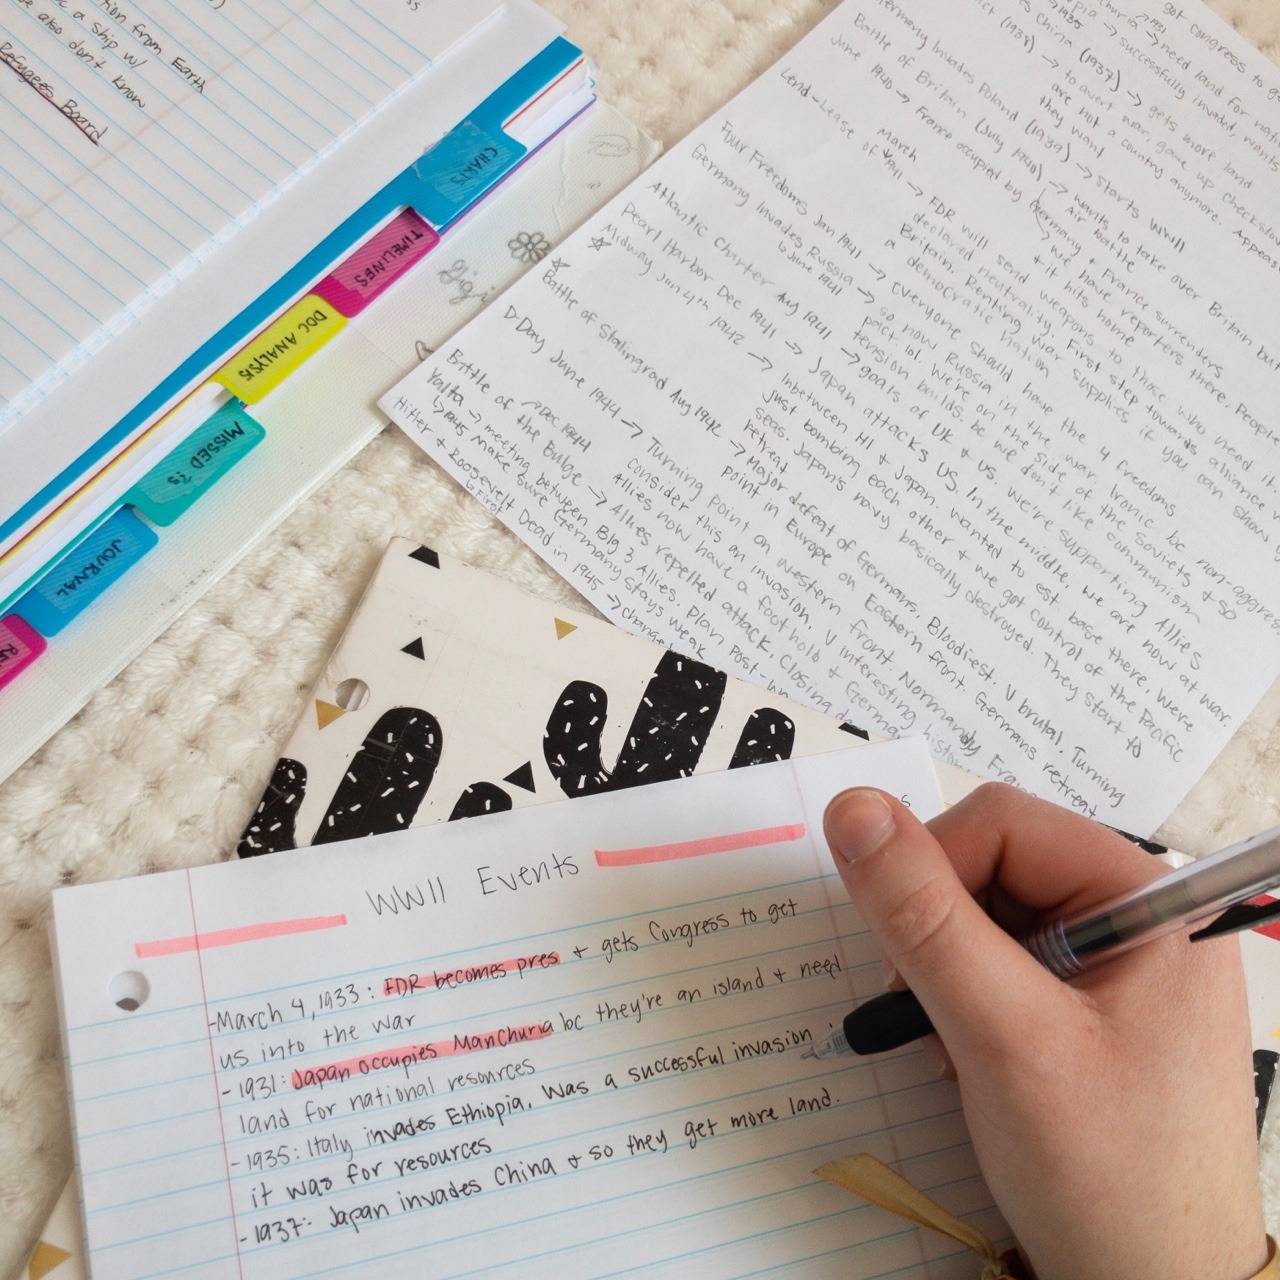 tion from Earth
a ship w/
also don't know
Refugees Board
CHARTS
TIMELINES
DOC ANALYSIS
MISSED ?s
JOURNAL
got congress to
1935 → successfully invaded, wants
China (1937) → gets more land
(1938) → to avert war, gave up
are not a country anymore. Appeas
they want
Germany Invades Poland (1939) → starts WWII
Battle of Britain (July 1940) → wants to take over Britain but
Air battle
June 1940 → France occupied by Germany + France surrenders
→ we have reporters there. People
+ it hits home
Lend-Lease March
of 1941 → FDR will send weapons to those who need it
declared neutrality. First step towards alliance
Britain. Renting war supplies if you can show
a democratic nation
Four Freedoms Jan 1941 → everyone should have the 4 freedoms
Germany Invades Russia → so now Russia in the war. Ironic bc non-aggres
↳ June 1941
pact lol. We're on the side of the Soviets + so
tension builds. bc we don't like communism
Atlantic Charter Aug 1941 → goals of UK + US. We're supporting Allies
Pearl Harbor Dec 1941 → Japan attacks US. In the middle, we are now at war.
Midway Jun 4th 1942 → Inbetween HI + Japan. Wanted to est base there, were
just bombing each other + we got control of the Pacific
seas. Japan's navy basically destroyed. They start to
retreat
Battle of Stalingrad Aug 1942 → Major defeat of Germans. Bloodiest. V brutal. Turning
point in Europe on Eastern front. Germans retreat
D-Day June 1944 → Turning point on western front Normandy
consider this an invasion. V interesting history
Allies now have a foothold + German
Battle of the Bulge → Allies repelled attack. Closing
Dec 1944
Yalta → meeting between Big 3 Allies. Plan Post-
↳ 1945 make sure Germany stays weak
Hitler + Roosevelt Dead in 1945 → change
↳ First
WWII Events
-March 4, 1933: FDR becomes pres + gets Congress to get
us into the war
- 1931: Japan occupies Manchuria bc they're an island + need
land for national resources
- 1935: Italy invades Ethiopia. Was a successful invasion
it was for resources
- 1937: Japan invades China + so they get more land.